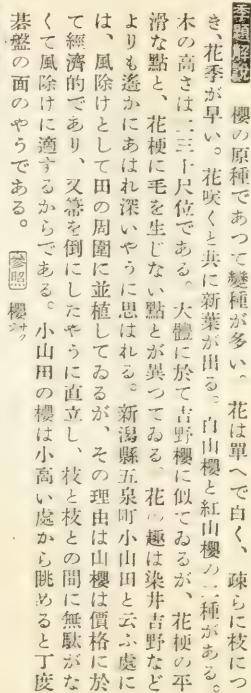 季題解説 櫻の原種であつて變種が多い。花は單へで白く、疎らに枝につ
き、花季が早い。花咲くと共に新葉が出る。白山櫻と紅山櫻の二種がある。
木の高さは二三十尺位である。大體に於て吉野櫻に似てゐるが、花梗の平
滑な點と、花梗に毛を生じない點とが異つてゐる 花の趣は染井吉野など
よりも遙かにあはれ深いやうに思はれる。新潟縣五泉町小山田と云ふ處に
は、風除けとして田の周圍に並植してゐるが、その理由は山櫻は價格に於
て經濟的であり、又箒を倒にしたやうに直立し、枝と枝との間に無駄がな
くて風除けに適するからである。小山田の櫻は小高い處から眺めると丁度
碁盤の面のやうである。 參照 櫻